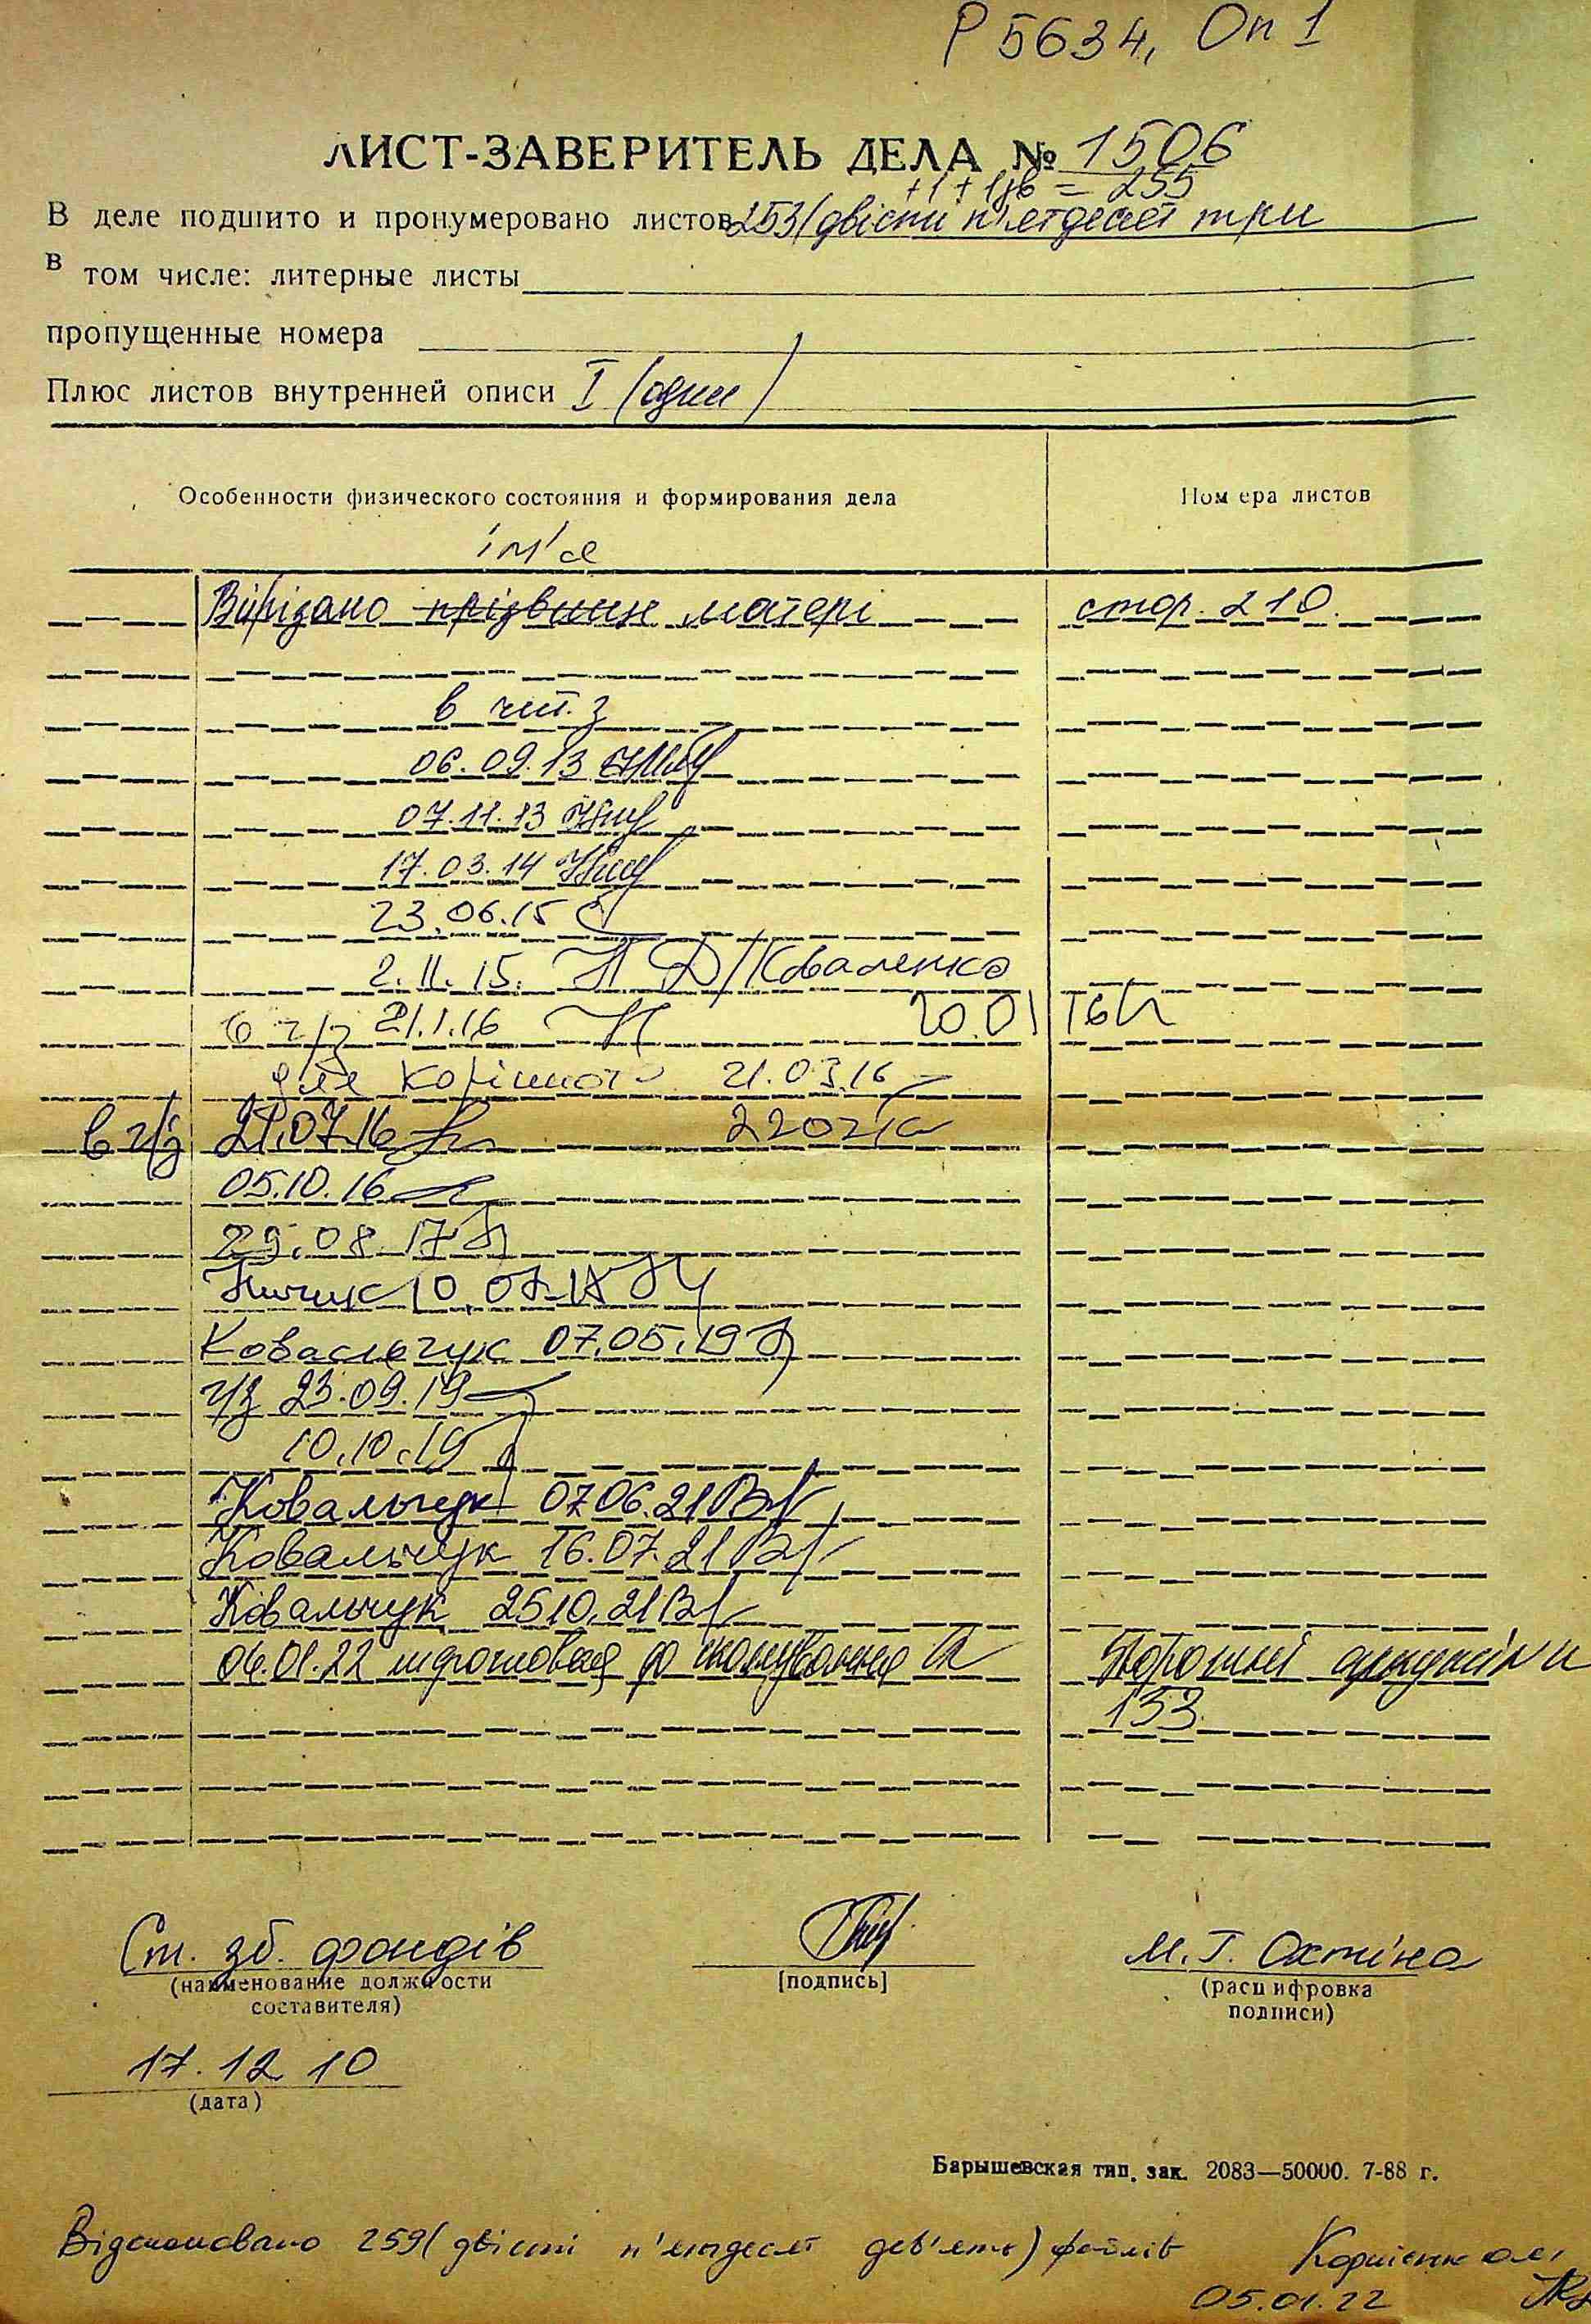 Р 5634, Оп 1
ЛИСТ-ЗАВЕРИТЕЛЬ ДЕЛА № 1506
+1 + 1 зв = 255
В деле подшито и пронумеровано листов 253 (двісті п'ятдесят три
В том числе: литерные листы
пропущенные номера
Плюс листов внутренней описи I (один)
Особенности физического состояния и формирования дела
Номера листов
ім'я
Вирізано прізвище матері стор. 210.
в чит. з
06.09.13
07.11.13
17.03.14
23.06.15
2.11.15. Коваленко
в ч/з 21.1.16 20.01
для 21.03.16
в ч/з 21.07.16
05.10.16
29.08.17
10.07.18
Ковальчук 07.05.19
ч/з 23.09.19
10.10.19
Ковальчук 07.06.21
Ковальчук 16.07.21
Ковальчук 25.10.21
06.01.22 підготовка до сканування
153
Ст. зб. фондів
М.Г. Охтіна
(наименование должности
составителя)
[подпись]
(расшифровка
подписи)
17.12 10
(дата)
Барышевская тип. зак. 2083—50000. 7-88 г.
Відскановано 259 (двісті п'ятдесят дев'ять) файлів
05.01.22